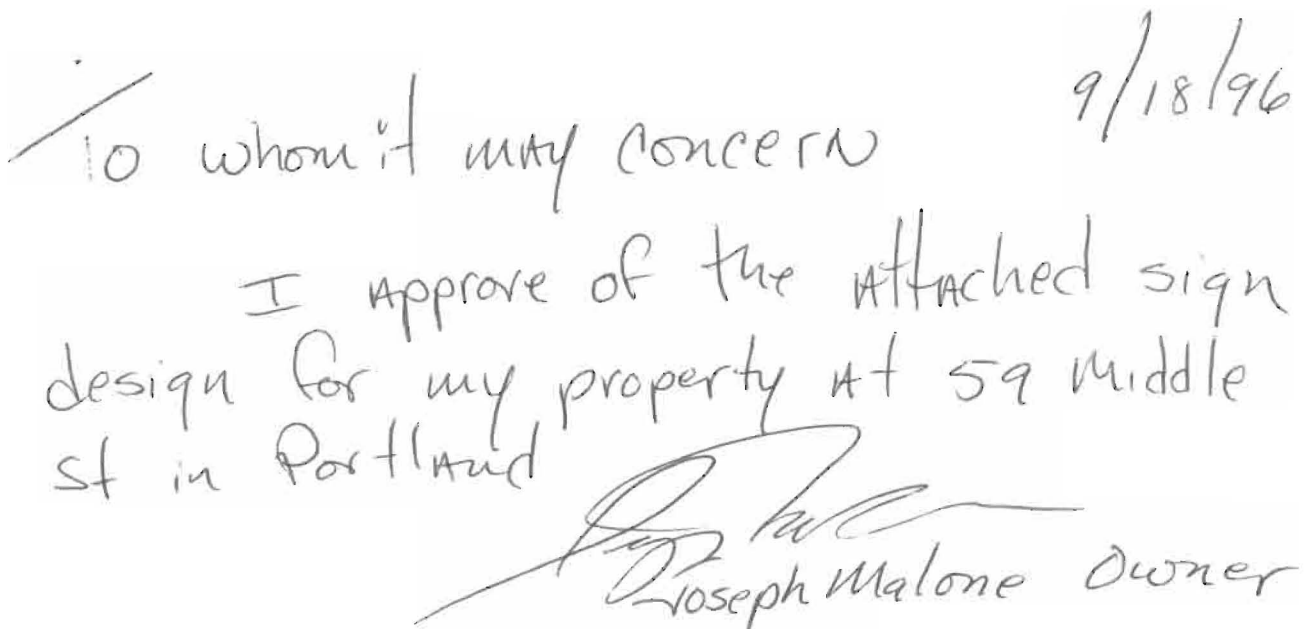 9/18/96
To whom it may concern
I approve of the attached sign
design for my property at 59 Middle
st in Portland
Joseph Malone Owner